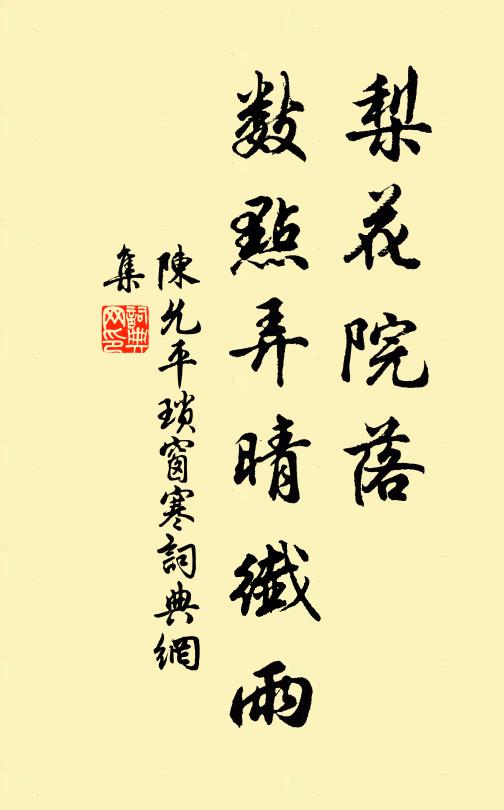 梨花院落
數點弄晴纖雨
陳允平瑣窗寒詞典網
集
詞典网印